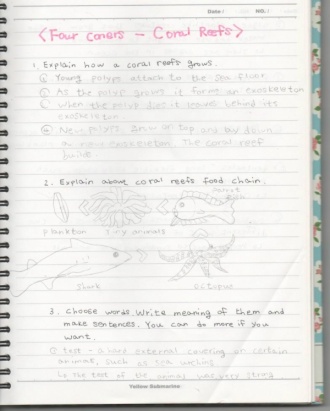 Date / NO. /
<Four coners - Coral Reefs>
1. Explain how a coral reefs grows.
ⓐ Young polyps attach to the sea floor
ⓑ As the polyp grows it forms an exoskeleton
ⓒ When the polyp dies it leaves behind its
exoskeleton
ⓓ New polyps grow on top and lay down
a new exoskeleton. The coral reef
builds.
2. Explain above coral reefs food chain.
parrot
fish
plankton Tiny animals
Shark octopus
3. choose words. Write meaning of them and
make sentences. You can do more if you
want.
① test - a hard external covering or certain
animal, such as sea
The test of the animal was very strong
Yellow Submarine